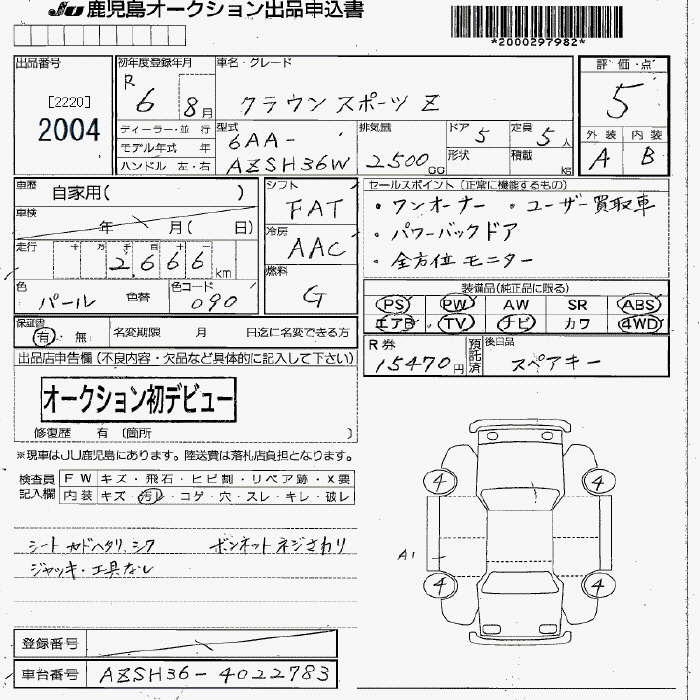 JU 鹿児島オークション出品申込書
*2000297982*
出品番号 初年度登録年月 車名・グレード 評価・点
[2220] R 6 8月 クラウン スポーツ Z 5
2004 ディーラー・並 行 型式 排気量 ドア 5 定員 5人 外装 内装
モデル年式 年 6AA-
ハンドル 左・右 AZSH36W 2500cc 形状 積載 kg A B
車歴 自家用( ) シフト FAT セールスポイント(正常に機能するもの)
車検 年 月( 日) ・ワンオーナー ・ユーザー買取車
走行 十 万 千 百 十 一 冷房 AAC ・パワーバックドア
2,666 km ・全方位モニター
色 パール 色替 色コード 090 燃料 G 装備品(純正品に限る)
PS PW AW SR ABS
保証書 有 無 名変期限 月 日迄に名変できる方 エアB TV ナビ カワ 4WD
出品店申告欄(不良内容・欠品など具体的に記入して下さい) R券 15470円 預託済 後日品 スペアキー
オークション初デビュー
修復歴 有 (箇所 )
※現車はJU鹿児島にあります。陸送費は落札店負担となります。
検査員記入欄 FW キズ・飛石・ヒビ割・リペア跡・X要
内装 キズ・汚レ・コゲ・穴・スレ・キレ・破レ
4 4
シート カドヘタリ、シワ ボンネット ネジさわり A1
ジャッキ・工具なし
4 4
登録番号
車台番号 AZSH36-4022783